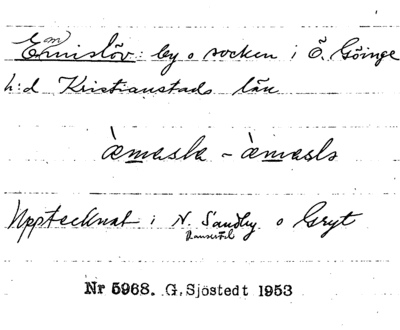 Emmislöv: by o socken i Ö. Göinge
h:d Kristianstads län
àmasla - àmasls
Upptecknat i N. Sandby o Gryt
Nr 5968. G. Sjöstedt 1953